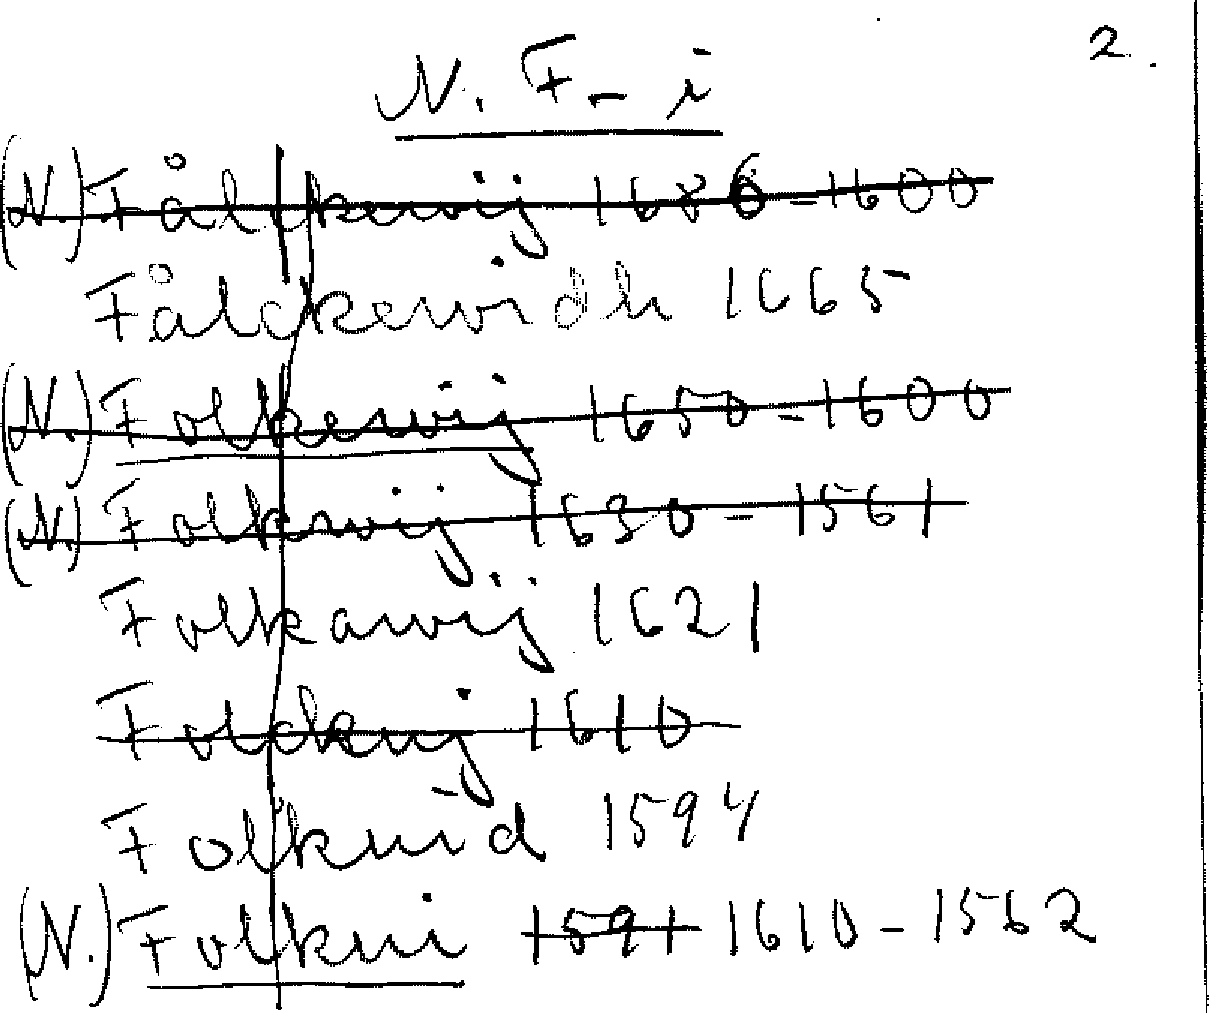 2.
N. F - i
(N.) Fålckewij 1686 - 1600
Fålckewidh 1665
(N.) Folkewij 1650 - 1600
(N.) Folkwij 1630 - 1561
Folkawij 1621
Folckuij 1610
Folkuid 1594
(N.) Folkui 1591 1610 - 1562